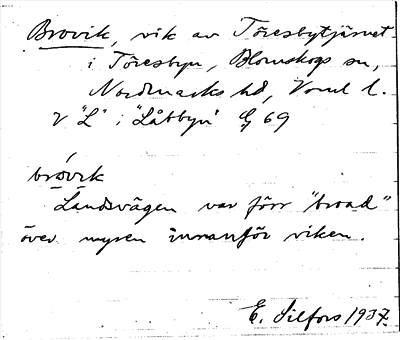 Brovik, vik av Töresbytjärnet
i Töresbyn, Blomskogs sn,
Nordmarks hd, Värml. l.
V "L" i "Låbbyn" Eg 69
brovik
Landsvägen var förr "broad"
över myren innanför viken.
E. Silfors 1937.